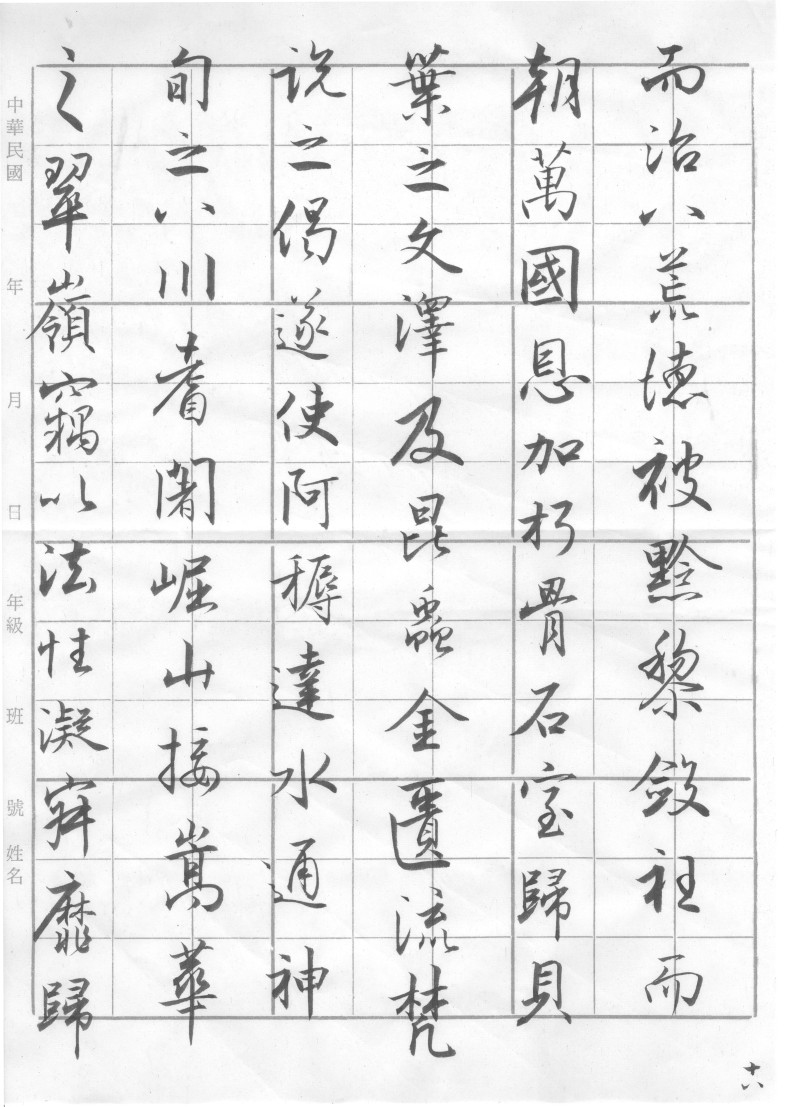 而治八荒德被黔黎斂衽而
朝萬國恩加朽骨石室歸貝
葉之文澤及昆蟲金匱流梵
說之偈遂使阿耨達水通神
甸之八川耆闍崛山接嵩華
之翠嶺竊以法性凝寂靡歸
中華民國 年 月 日 年級 班 號 姓名
十八